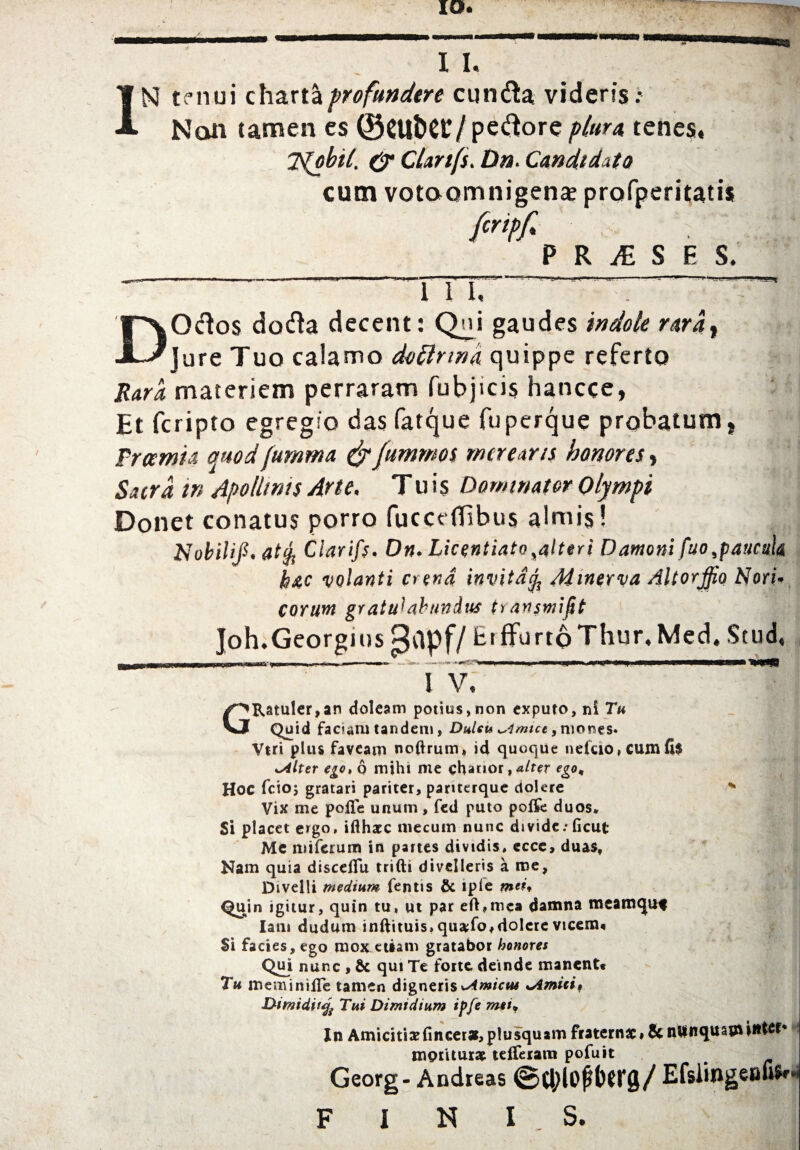 10.
I I.
IN tenui chartâ profundere cunćta videris:
Non tamen es Geuder/ pećtore plura tenes.
Nobil. & Clariſs. Dn. Candidato
cum voto omnigenæ proſperitatis
ſcripſ.
P R Æ S E S.
I I I.
DOćtos doćta decent: Qui gaudes indole rarâ,
Jure Tuo calamo doćtrinâ quippe referto
Rarâ materiem perraram ſubjicis hancce,
Et ſcripto egregio das ſatque ſuperque probatum,
Præmia quod ſumma & ſummos merearis honores,
Sacrâ in Apollinis Arte. Tuis Dominator Olympi
Donet conatus porro ſucceſſibus almis!
Nobiliſſ. atq; Clariſs. Dn. Licentiato, alteri Damoni ſuo, paucula
hæc volanti crenâ invitâq; Minerva Altorffio Nori-
corum gratulabundus transmiſit
Joh. Georgius Zapf/ Erffurtô Thur. Med. Stud.
I V.
GRatuler, an doleam potius, non exputo, ni Tu
Quid faciam tandem, Dulcis Amice, mones.
Vtri plus faveam noſtrum, id quoque neſcio, cum ſis
Alter ego, ô mihi me charior, alter ego.
Hoc ſcio; gratari pariter, pariterque dolere
Vix me poſſe unum, ſed puto poſſe duos.
Si placet ergo, iſthæc mecum nunc divide: ſicut
Me miſerum in partes dividis, ecce, duas,
Nam quia disceſſu triſti divelleris à me,
Divelli medium ſentis & ipſe mei.
Quin igitur, quin tu, ut par eſt, mea damna meamque
Iam dudum inſtituis, quæſo, dolere vicem.
Si facies, ego mox etiam gratabor honores
Qui nunc, & qui Te forte deinde manent.
Tu meminiſſe tamen digneris Amicus Amici,
Dimidiiq; Tui Dimidium ipſe mei.
In Amicitiæ ſinceræ, plusquam fraternæ, & nunquam inter-
morituræ teſſeram poſuit
Georg-Andreas Schloßberg/ Eſslingenſis.
F I N I S.